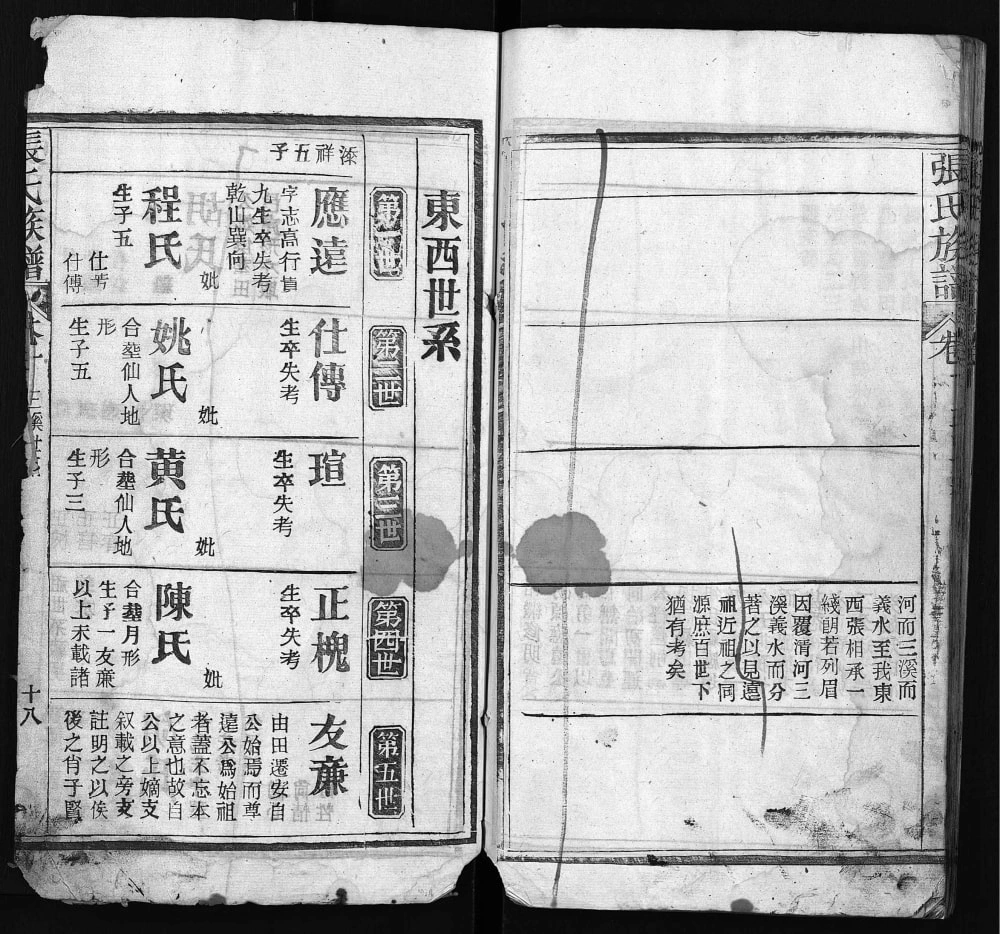 張氏族譜
卷
河而三溪而
義水至我東
西張相承一
綫朗若列眉
因覆清河三
溪義水而分
著之以見遠
祖近祖之同
源庶百世下
猶有考矣
東西世系
第二世
第三世
第四世
第五世
漆祥五子
應遠
字志高行
九生卒失考
乾山巽向
妣
程氏
生子五
仕
仕傳
仕傳
生卒失考
妣
姚氏
合塋仙人地
形
生子五
瑄
生卒失考
妣
黄氏
合塋仙人地
形
生子三
正槐
生卒失考
妣
陳氏
合墓月形
生子一友亷
以上未載諸
友亷
由田遷安自
公始焉而尊
遠公爲始祖
者蓋不忘本
之意也故自
公以上嫡支
叙載之旁支
註明之以俟
後之肖子賢
張氏族譜
十八